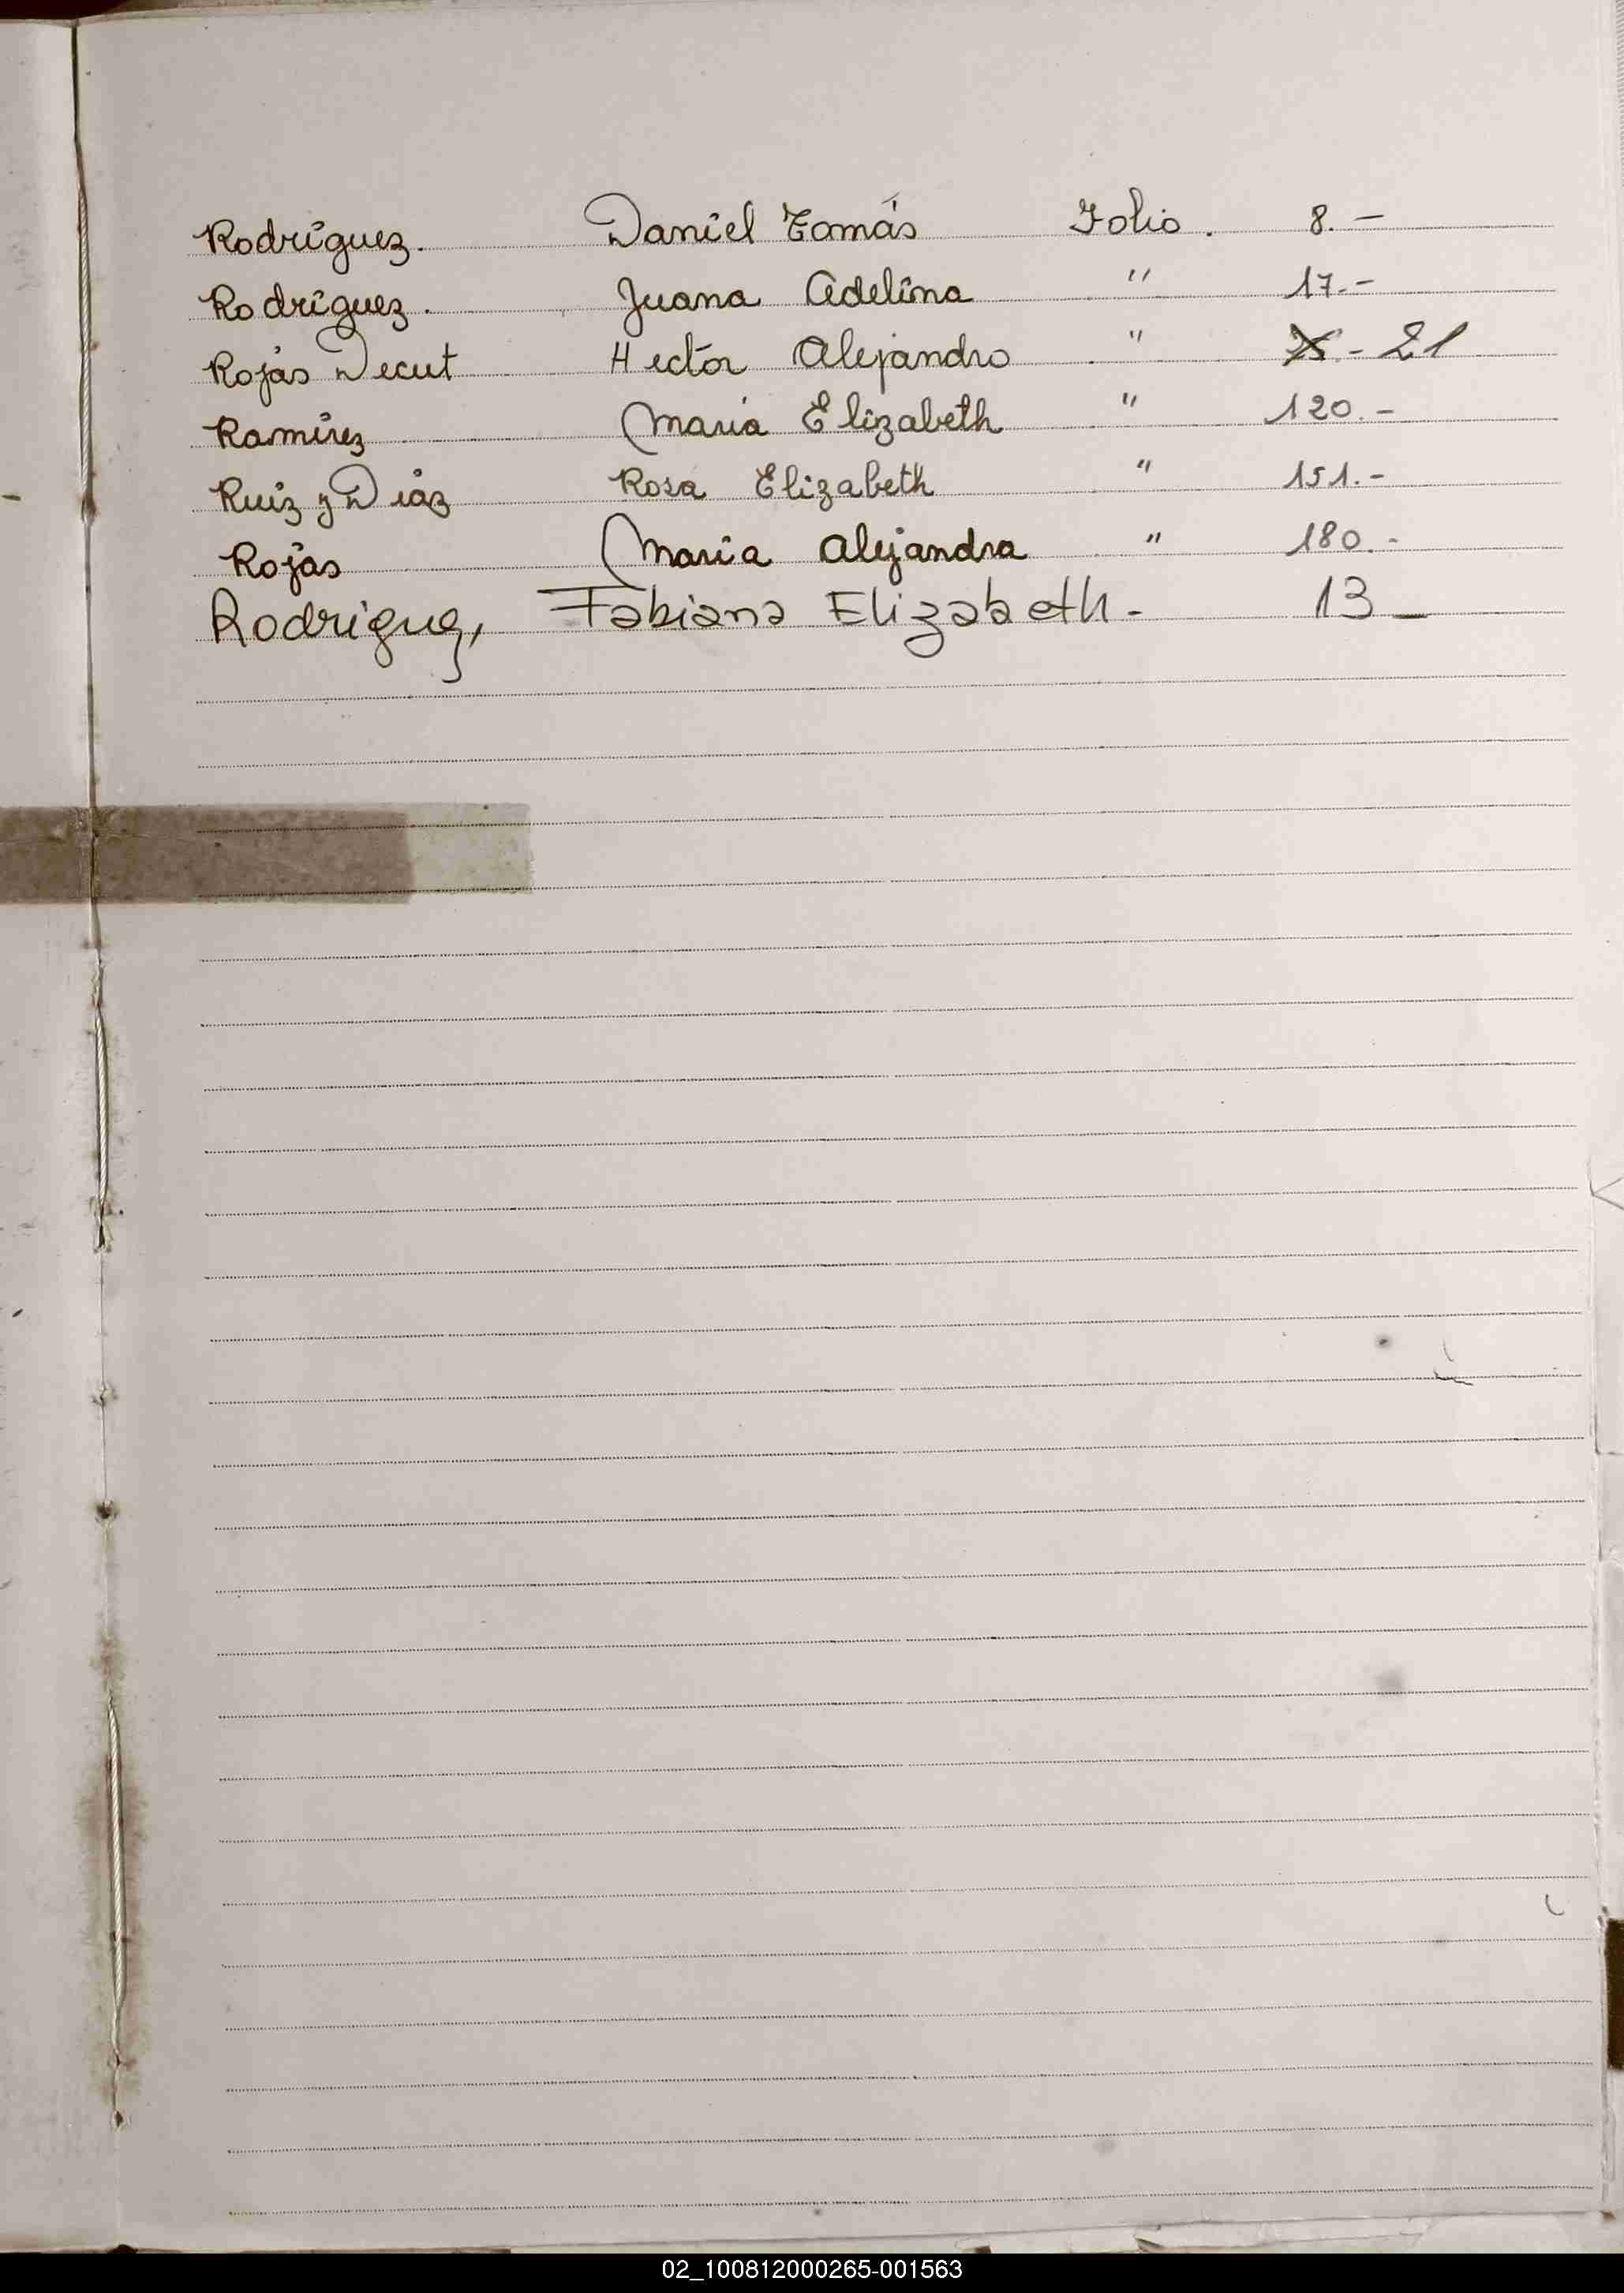 Rodríguez. Daniel Tomás Folio. 8.-
Rodríguez. Juana Adelina " 17.-
Rojas Decut Hector Alejandro " - 21
Ramirez Maria Elizabeth " 120.-
Ruiz y Diaz Rosa Elizabeth " 151.-
Rojas Maria Alejandra " 180.-
Rodriguez, Fabiana Elizabeth - 13 -
02_100812000265-001563